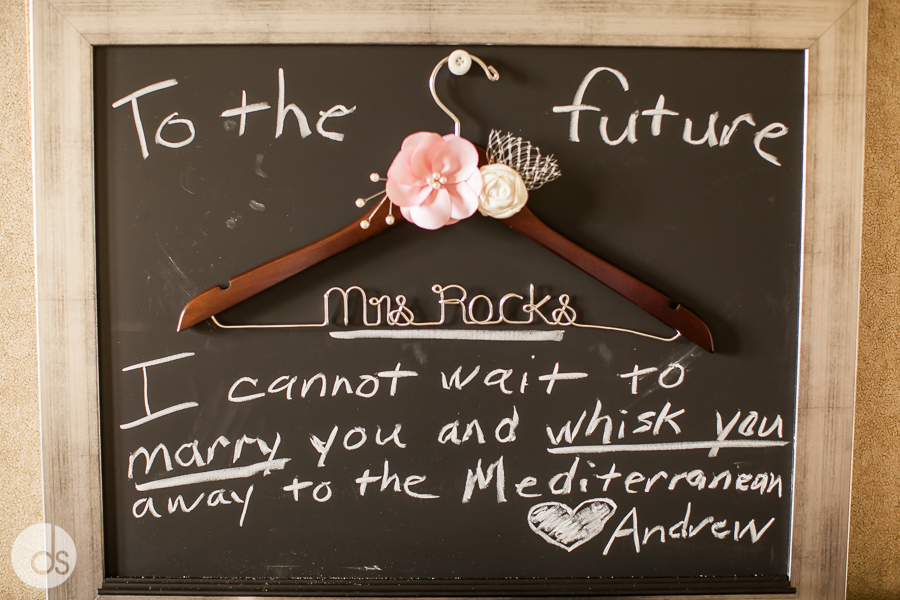 To the future
Mrs Rocks
I cannot wait to
marry you and whisk you
away to the Mediterranean
Andrew
ds